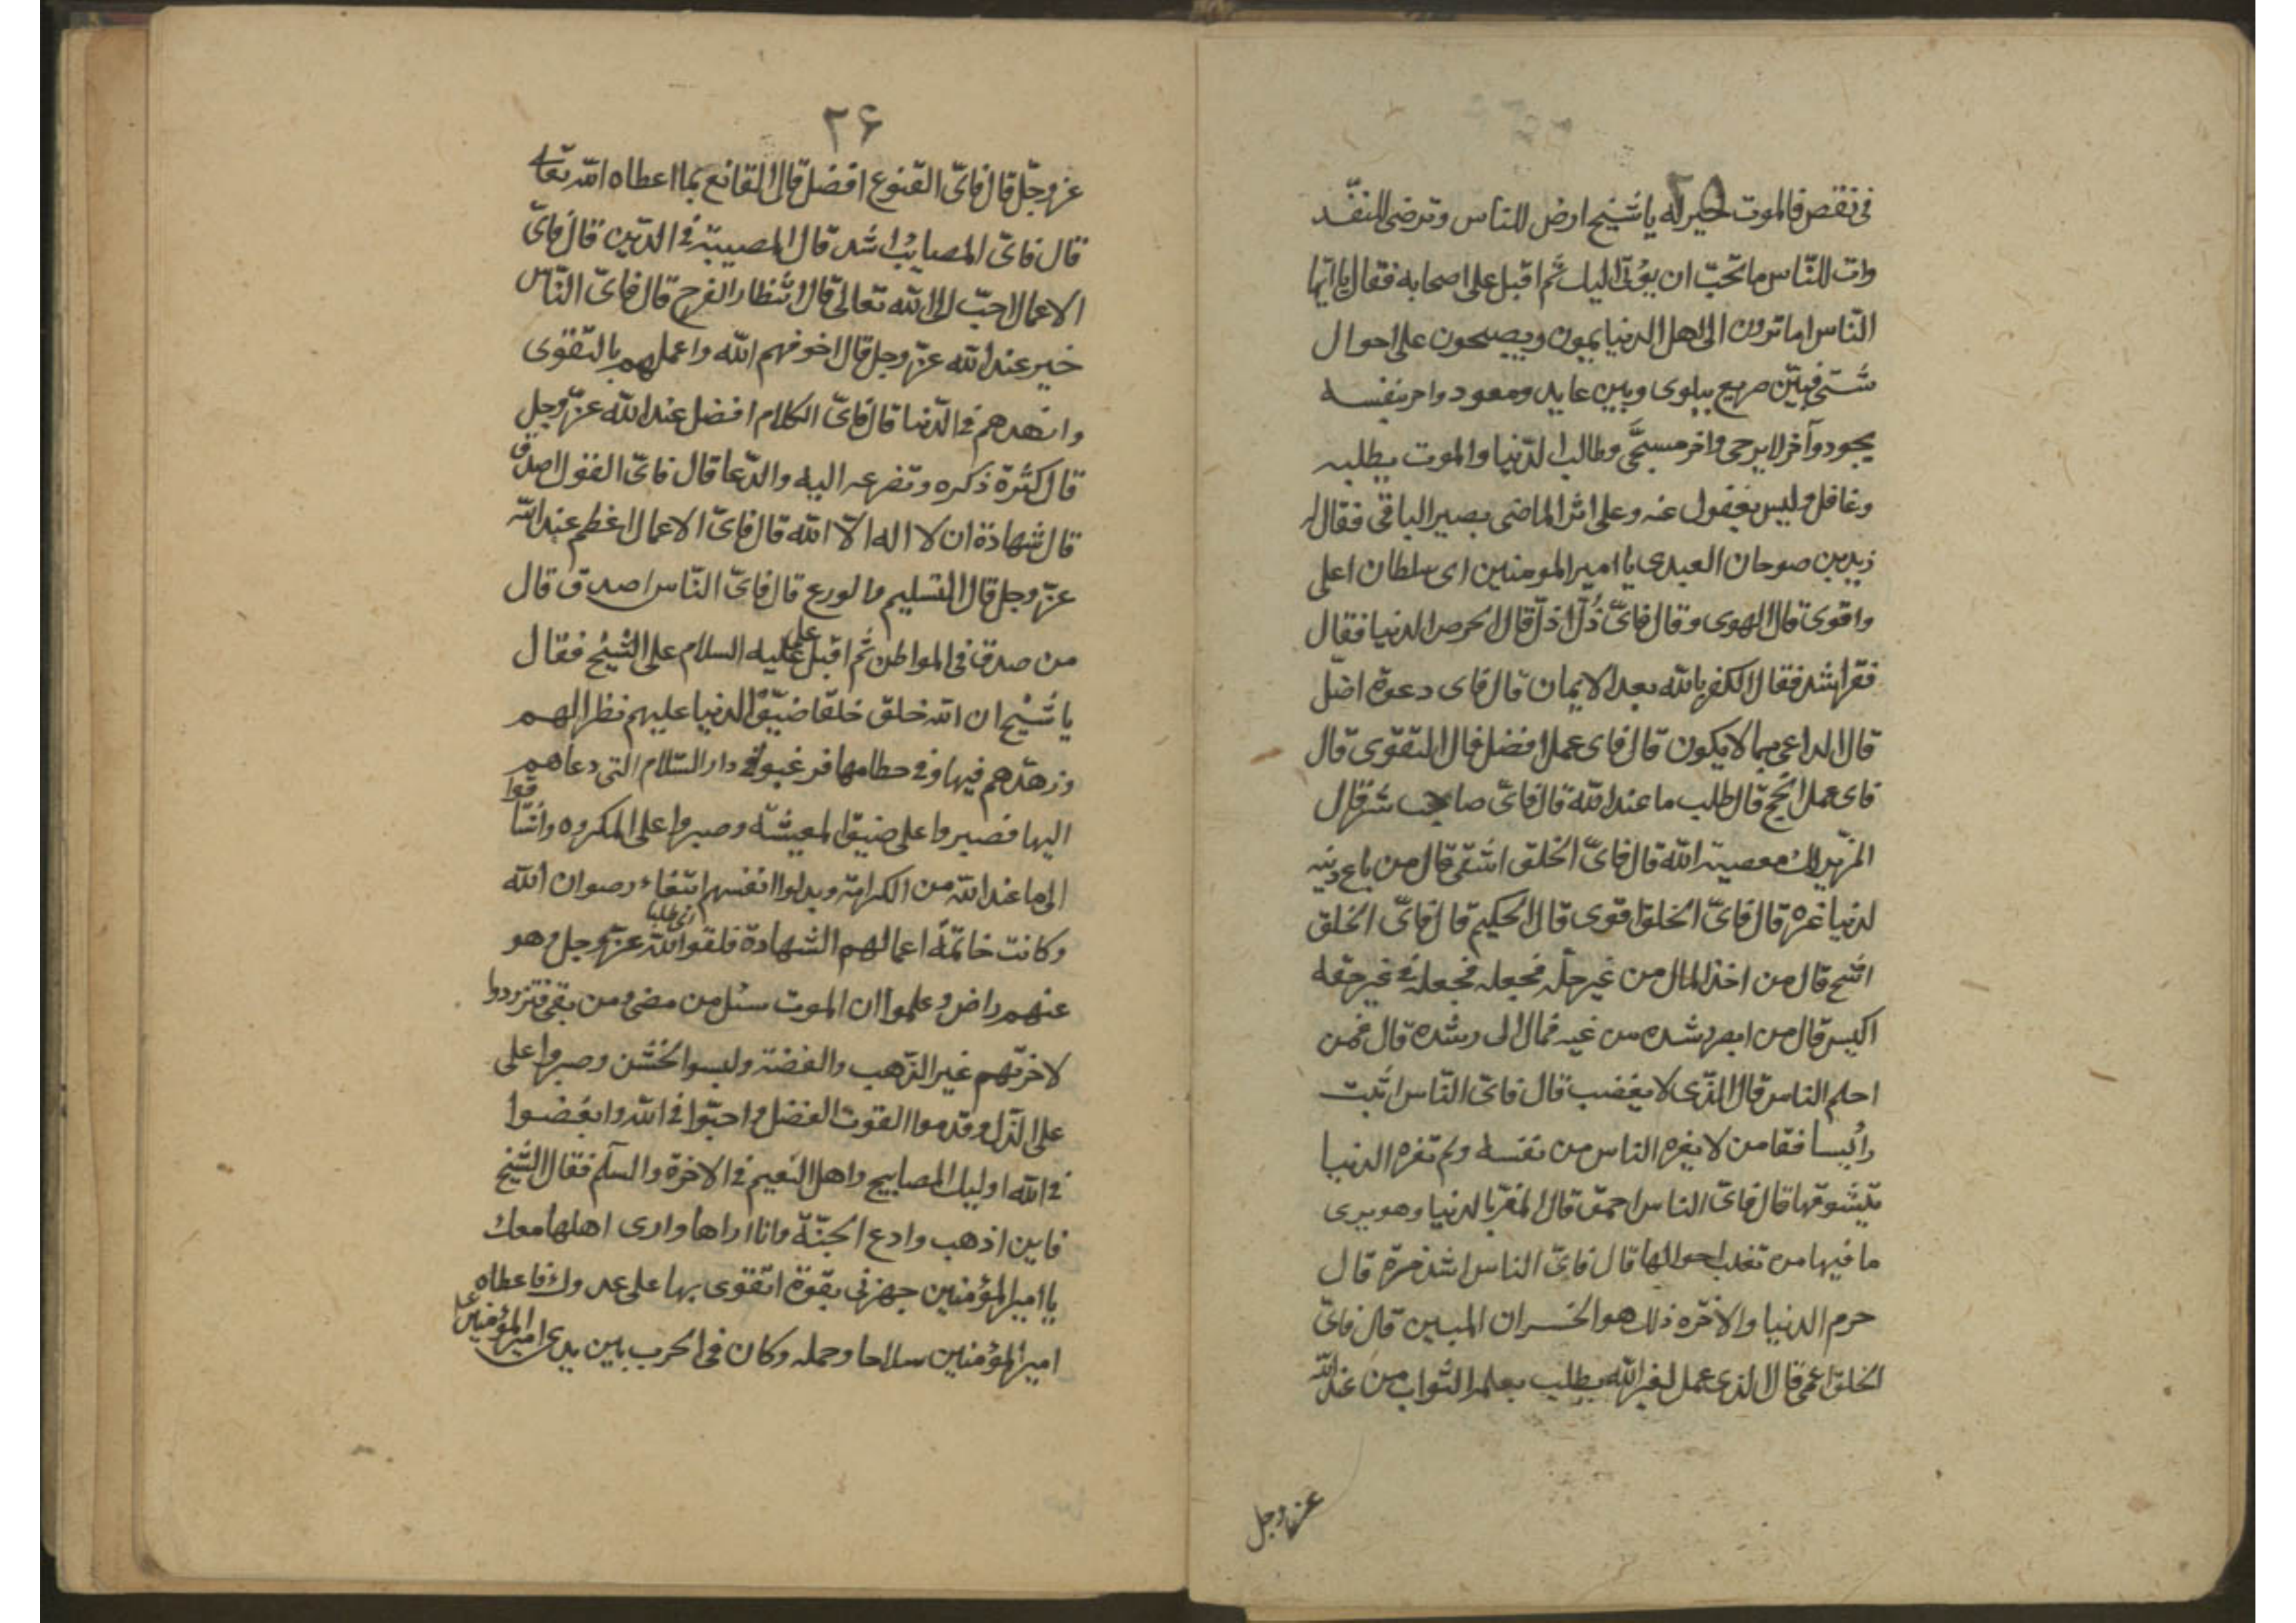 ٢٥
فى نقص فالموت خير له يا شيخ ارض للناس وترضى لنفسك
وات للناس ما تحبّ ان يؤتى اليك ثم اقبل على اصحابه فقال يا ايها
النّاس اما ترون الى اهل الدنيا يمسون ويصبحون على احوال
شتى فبين صريع يبلوى وبين عايد ومعود واخر بنفسه
يجود وآخر لا يرجى واخر مسجّى وطالب الدّنيا والموت يطلبه
وغافل وليس بغفول عنه وعلى اثر الماضى يصير الباقى فقال له
زيد بن صوحان العبدى يا امير المومنين اى سلطان اعلى
واقوى قال الهوى وقال فاىّ ذُلّ اذلّ قال الحرص الدنيا فقال
فقر اشد فقال الكفر بالله بعد الايمان قال فاى دعوة اضلّ
قال الداعى بما لا يكون قال فاى عمل افضل قال التقوى قال
فاى عمل انجح قال طلب ما عند الله قال فاىّ صاحب شر قال
المزيّن لك معصية الله قال فاىّ الخلق اشقى قال من باع دينه
لدنيا غيره قال فاىّ الخلق اقوى قال الحكيم قال فاىّ الخلق
اشح قال من اخذ المال من غير حلّه فجعله فجعله فى غير حقه
اكيس قال من ابصر رشده من غيه فمال الى رشده قال فمن
احلم الناس قال الذّى لا يغضب قال فاىّ النّاس اثبت
رأيسا فقا من لا يغره الناس من نفسه ولم تغره الدنيا
بتشوقها قال فاىّ الناس احمق قال المغتر بالدنيا وهو يرى
ما فيها من تقلب احوالها قال فاىّ الناس اشد حسرة قال
حرم الدنيا والآخره ذلك هو الخسران المبين قال فاىّ
الخلق اعمى قال الذى عمل لغير الله يطلب بعلمه الثواب من عند الله
عز وجل
٢۶
عز وجلّ قال فاىّ القنوع افضل قال القانع بما اعطاه الله تعالى
قال فاىّ المصايب اشد قال المصيبة فى الدّين قال فاىّ
الاعمال احبّ الى الله تعالى قال انتظار الفرج قال فاىّ النّاس
خير عند الله عزّ وجل قال اخوفهم الله واعملهم بالتقوى
وازهدهم فى الدّنيا قال فاىّ الكلام افضل عند الله عزّ وجل
قال كثرة ذكره وتضرعه اليه والدّعا قال فاىّ القول اصدق
قال شهادة ان لا اله الّا الله قال فاىّ الاعمال اعظم عند الله
عزّ وجل قال التسليم والورع قال فاىّ النّاس اصدق قال
من صدق فى المواطن ثم اقبل على عليه السلام على الشيخ فقال
يا شيخ ان الله خلق خلقا ضيّق الدنيا عليهم نظرا لهم
وزهّدهم فيها وفى حطامها فرغبوا فى دار السّلام التى دعاهم
اليها فصبروا على ضيق المعيشة وصبروا على المكروه واشتاقوا
الى ما عند الله من الكرامة وبدلوا انفسهم ابتغاء رضوان الله
وكانت خاتمة اعمالهم الشهادة فلقوا الله عزّ وجل وهو
عنهم راض وعلموا ان الموت سبيل من مضى ومن بقى فتزودوا
لاخرتهم غير الذّهب والفضة ولبسوا الخشن وصبروا على
على الذّل وقدموا القوت الفضل واحبّوا فى الله وابغضوا
فى الله اوليك المصابيح واهل النعيم فى الاخرة والسلم فقال الشيخ
فاين اذهب وادع الجنّة وانا اراها وارى اهلها معك
يا امير المؤمنين جهزنى بقوة اتقوى بها على عدوك فاعطاه
امير المؤمنين سلاحا وحمله وكان فى الحرب بين يدى امير المؤمنين